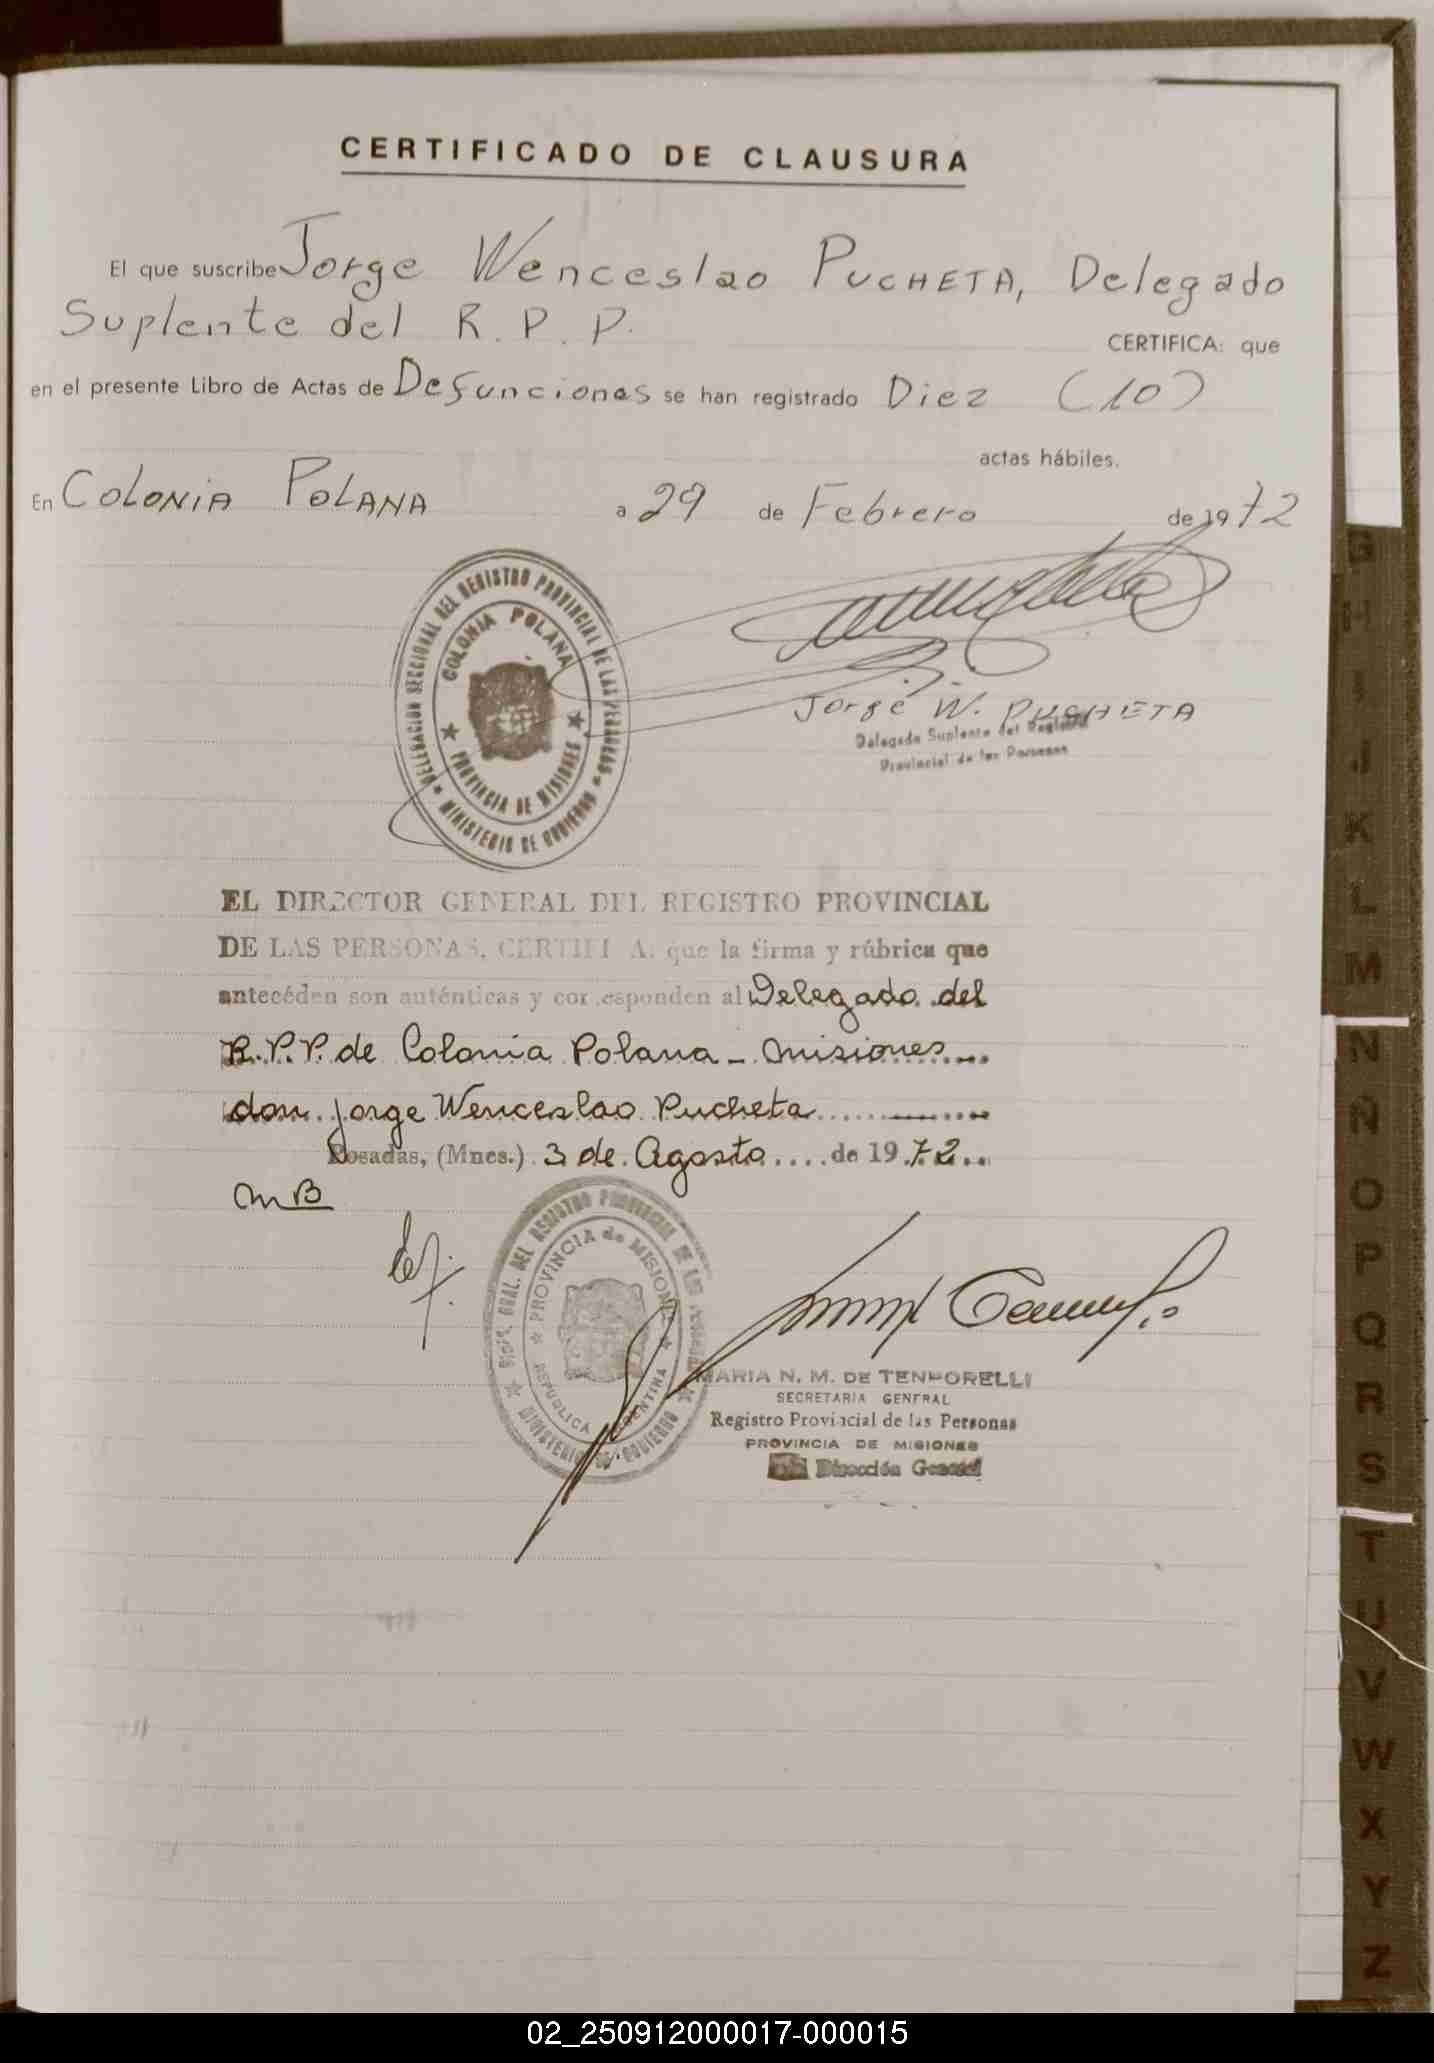 CERTIFICADO DE CLAUSURA
El que suscribe Jorge Wenceslao PUCHETA, Delegado
Suplente del R. P. P. CERTIFICA: que
en el presente Libro de Actas de Defunciones se han registrado Diez (10)
actas hábiles.
En COLONIA POLANA a 29 de Febrero de 1972
DELEGACION SECCIONAL DEL REGISTRO PROVINCIAL DE LAS PERSONAS
COLONIA POLANA
PROVINCIA DE MISIONES
MINISTERIO DE GOBIERNO
Jorge W. PUCHETA
Delegado Suplente del Registro
Provincial de las Personas
EL DIRECTOR GENERAL DEL REGISTRO PROVINCIAL
DE LAS PERSONAS, CERTIFI A: que la firma y rúbrica que
antecéden son auténticas y cor.esponden al Delegado del
R.P.P. de Colonia Polana - Misiones
don Jorge Wenceslao Pucheta
Posadas, (Mnes.) 3 de Agosto de 1972
MB
DIREC. GRAL. DEL REGISTRO PROVINCIAL DE LAS PERSONAS
PROVINCIA de MISIONES
REPUBLICA ARGENTINA
MINISTERIO DE GOBIERNO
MARIA N. M. DE TEMPORELLI
SECRETARIA GENERAL
Registro Provincial de las Personas
PROVINCIA DE MISIONES
Dirección General
G
H
I
J
K
L
M
N
Ñ
O
P
Q
R
S
T
U
V
W
X
Y
Z
02_250912000017-000015